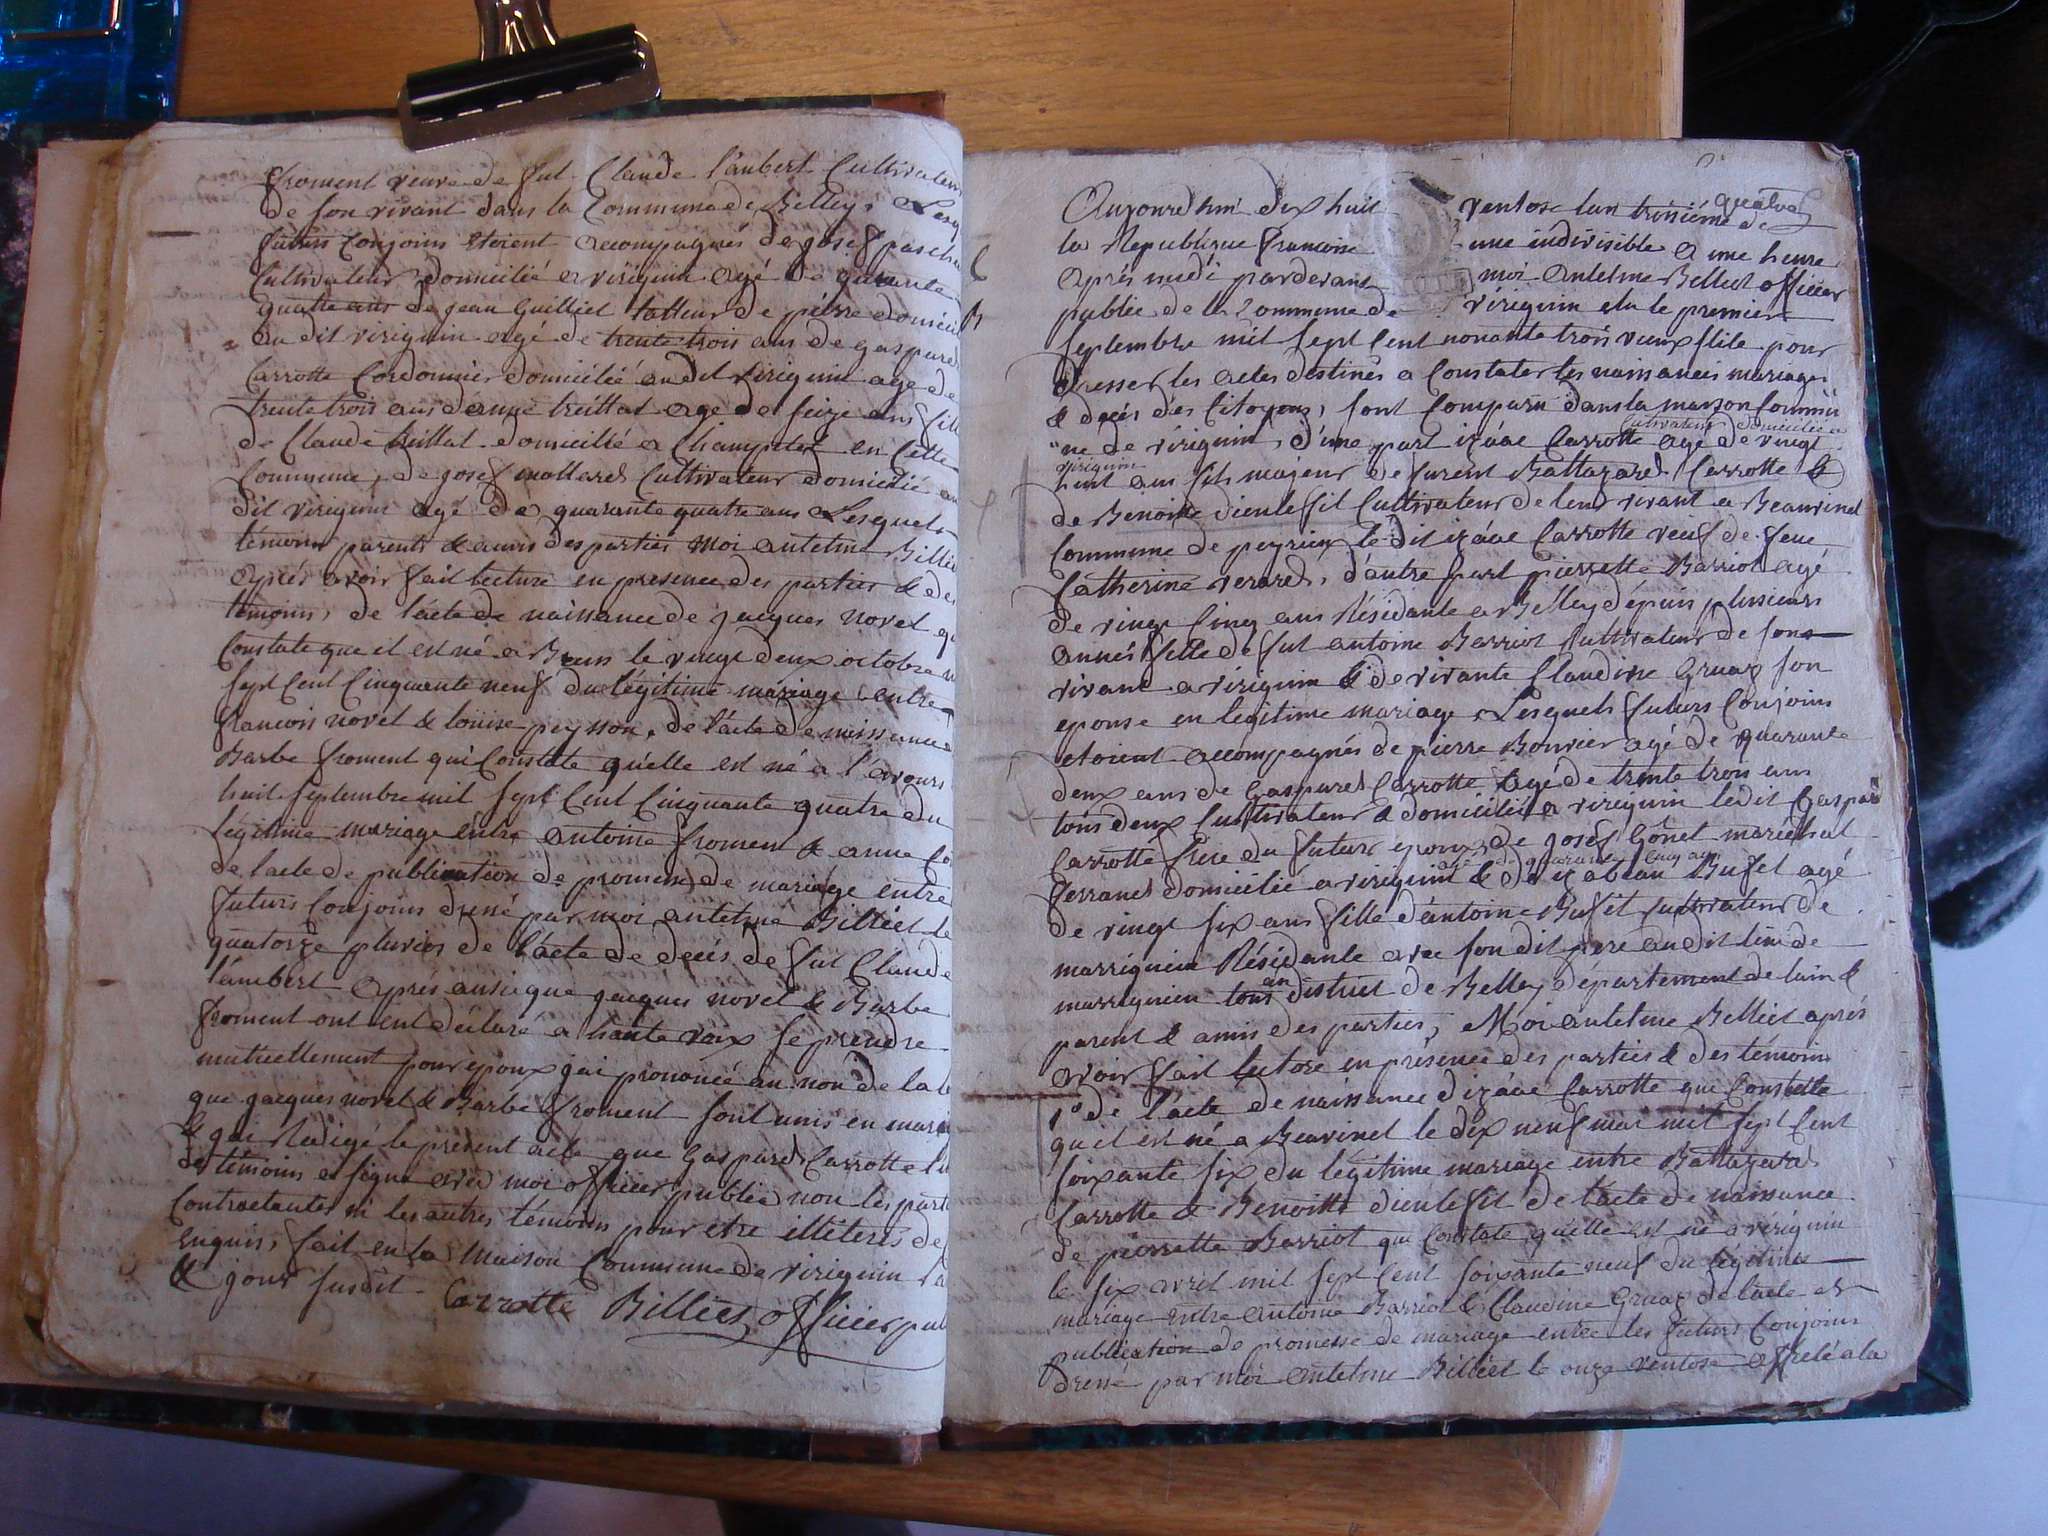 froment veuve de fut Claude l'aubert Cultivateur
de son vivant dans la Commune de Belley, Lesq
futurs Conjoins etoient accompagnés de josef paschu
Cultivateur domicilié a virignin agé de quarente
quatre ans de jean Guilliet tailleur de pierre domicil
au dit virignin agé de trente trois ans de gaspard
Carrotte Cordonnier domicilié au dit virignin agé de
trente trois ans d'anne treillat agé de seize ans fill
de Claude treillat domicilié a Champtel en Cette
Commune, de josef mollard Cultivateur domicilié au
dit virignin agé de quarante quatre ans Lesquels
témoins parents & amis des parties moi antelme Billie
aprés avoir fait lecture en presence des parties & des
témoins, de l'acte de naissance de jacques novel qu
Constate que il est né a Brens le vingt deux octobre m
sept Cent Cinquante neuf du légitime mariage entre
francois novel & louise peysson, de l'acte de naissance
Barbe froment qui Constate qu'elle est né a l'avours
huit septembre mil sept Cent Cinquante quatre du
légitime mariage entre antoine froment & anne Co
de l'acte de publication de promesse de mariage entre
futurs Conjoins dressé par moi antelme Billiet le
quatorze pluvios de l'acte de decés de fut Claude
l'ambert aprés aussi que jacques novel & Barbe
froment ont eut déclaré a haute voix se prendre
mutuellement pour epoux jai prononcé au nom de la l
que jacques novel & Barbe froment sont unis en mari
& jai Redigé le present acte que Gaspard Carrotte lu
des témoins a signé avec moi officier public non les part
Contractantes ni les autres témoins pour etre illéterés de
Enquis, fait en la maison Commune de virignin la
& jour susdit Carrotte Billiet, officier pub
quatre
Aujourdhui dix huit ventose lan troisiéme de
la Republique francoise une indivisible a une heure
aprés midi pardevant moi Antelme Billiet officier
public de la Commune de virignin elu le premier
septembre mil sept Cent nonante trois vieux stile pour
dresser les actes destinés a Constater les naissances mariages
& decés des Citoyens, sont Comparu dans la maison Commu
Cultivateur domicilié a
ne de virignin, d'une part izâac Carrotte agé de vingt
virignin
huit ans fils majeur de furent Baltazard Carrotte &
de Benoite dieulefit Cultivateur de leur vivant a Beauvinel
Commune de peyrieu le dit izâac Carrotte veuf de feue
Catherine verard, d'autre part pierrette Barriot agé
de vingt Cinq ans Résidante a Belley dépuis plusieurs
année fille de fut antoine Barriot Cultivateur de son
vivant a virignin & de vivante Claudine Gruaz son
epouse en legitime mariage, Lesquels futurs Conjoins
etoient accompagnés de pierre Bonvier agé de quarante
deux ans de Gaspard Carrotte agé de trente trois ans
tous deux Cultivateur & domicilié a virignin ledit Gaspar
Carrotte frere du futur epoux, de josef Gônet maréchal
agé de quarante Cinq ans
ferrand domicilié a virignin & de izabeau Bufet agé
de vingt six ans fille d'antoine Bufet Cultivateur de
marrignieu Résidante avec son dit pere au dit lieu de
an
marrignieu tous district de Belley département de lain &
parent & amis des parties, Moi antelme Billiet aprés
avoir fait lecture en présence des parties & des témoins
1° de l'acte de naissance d'izâac Carrotte que Constate
qu'il est né a Beavinel le dix neuf mai mil sept Cent
soixante six du légitime mariage entre Baltazard
Carrotte & Benoitte dieulefit de l'acte de naissance
de pierrette Barriot qui Constate qu'elle est né a virignin
le six avril mil sept Cent soixante neuf du légitime
mariage entre antoine Barriot & Claudine Gruaz de l'acte de
publication de promesse de mariage entre les futurs Conjoins
dressé par moi antelme Billiet le onze ventose affiché a la